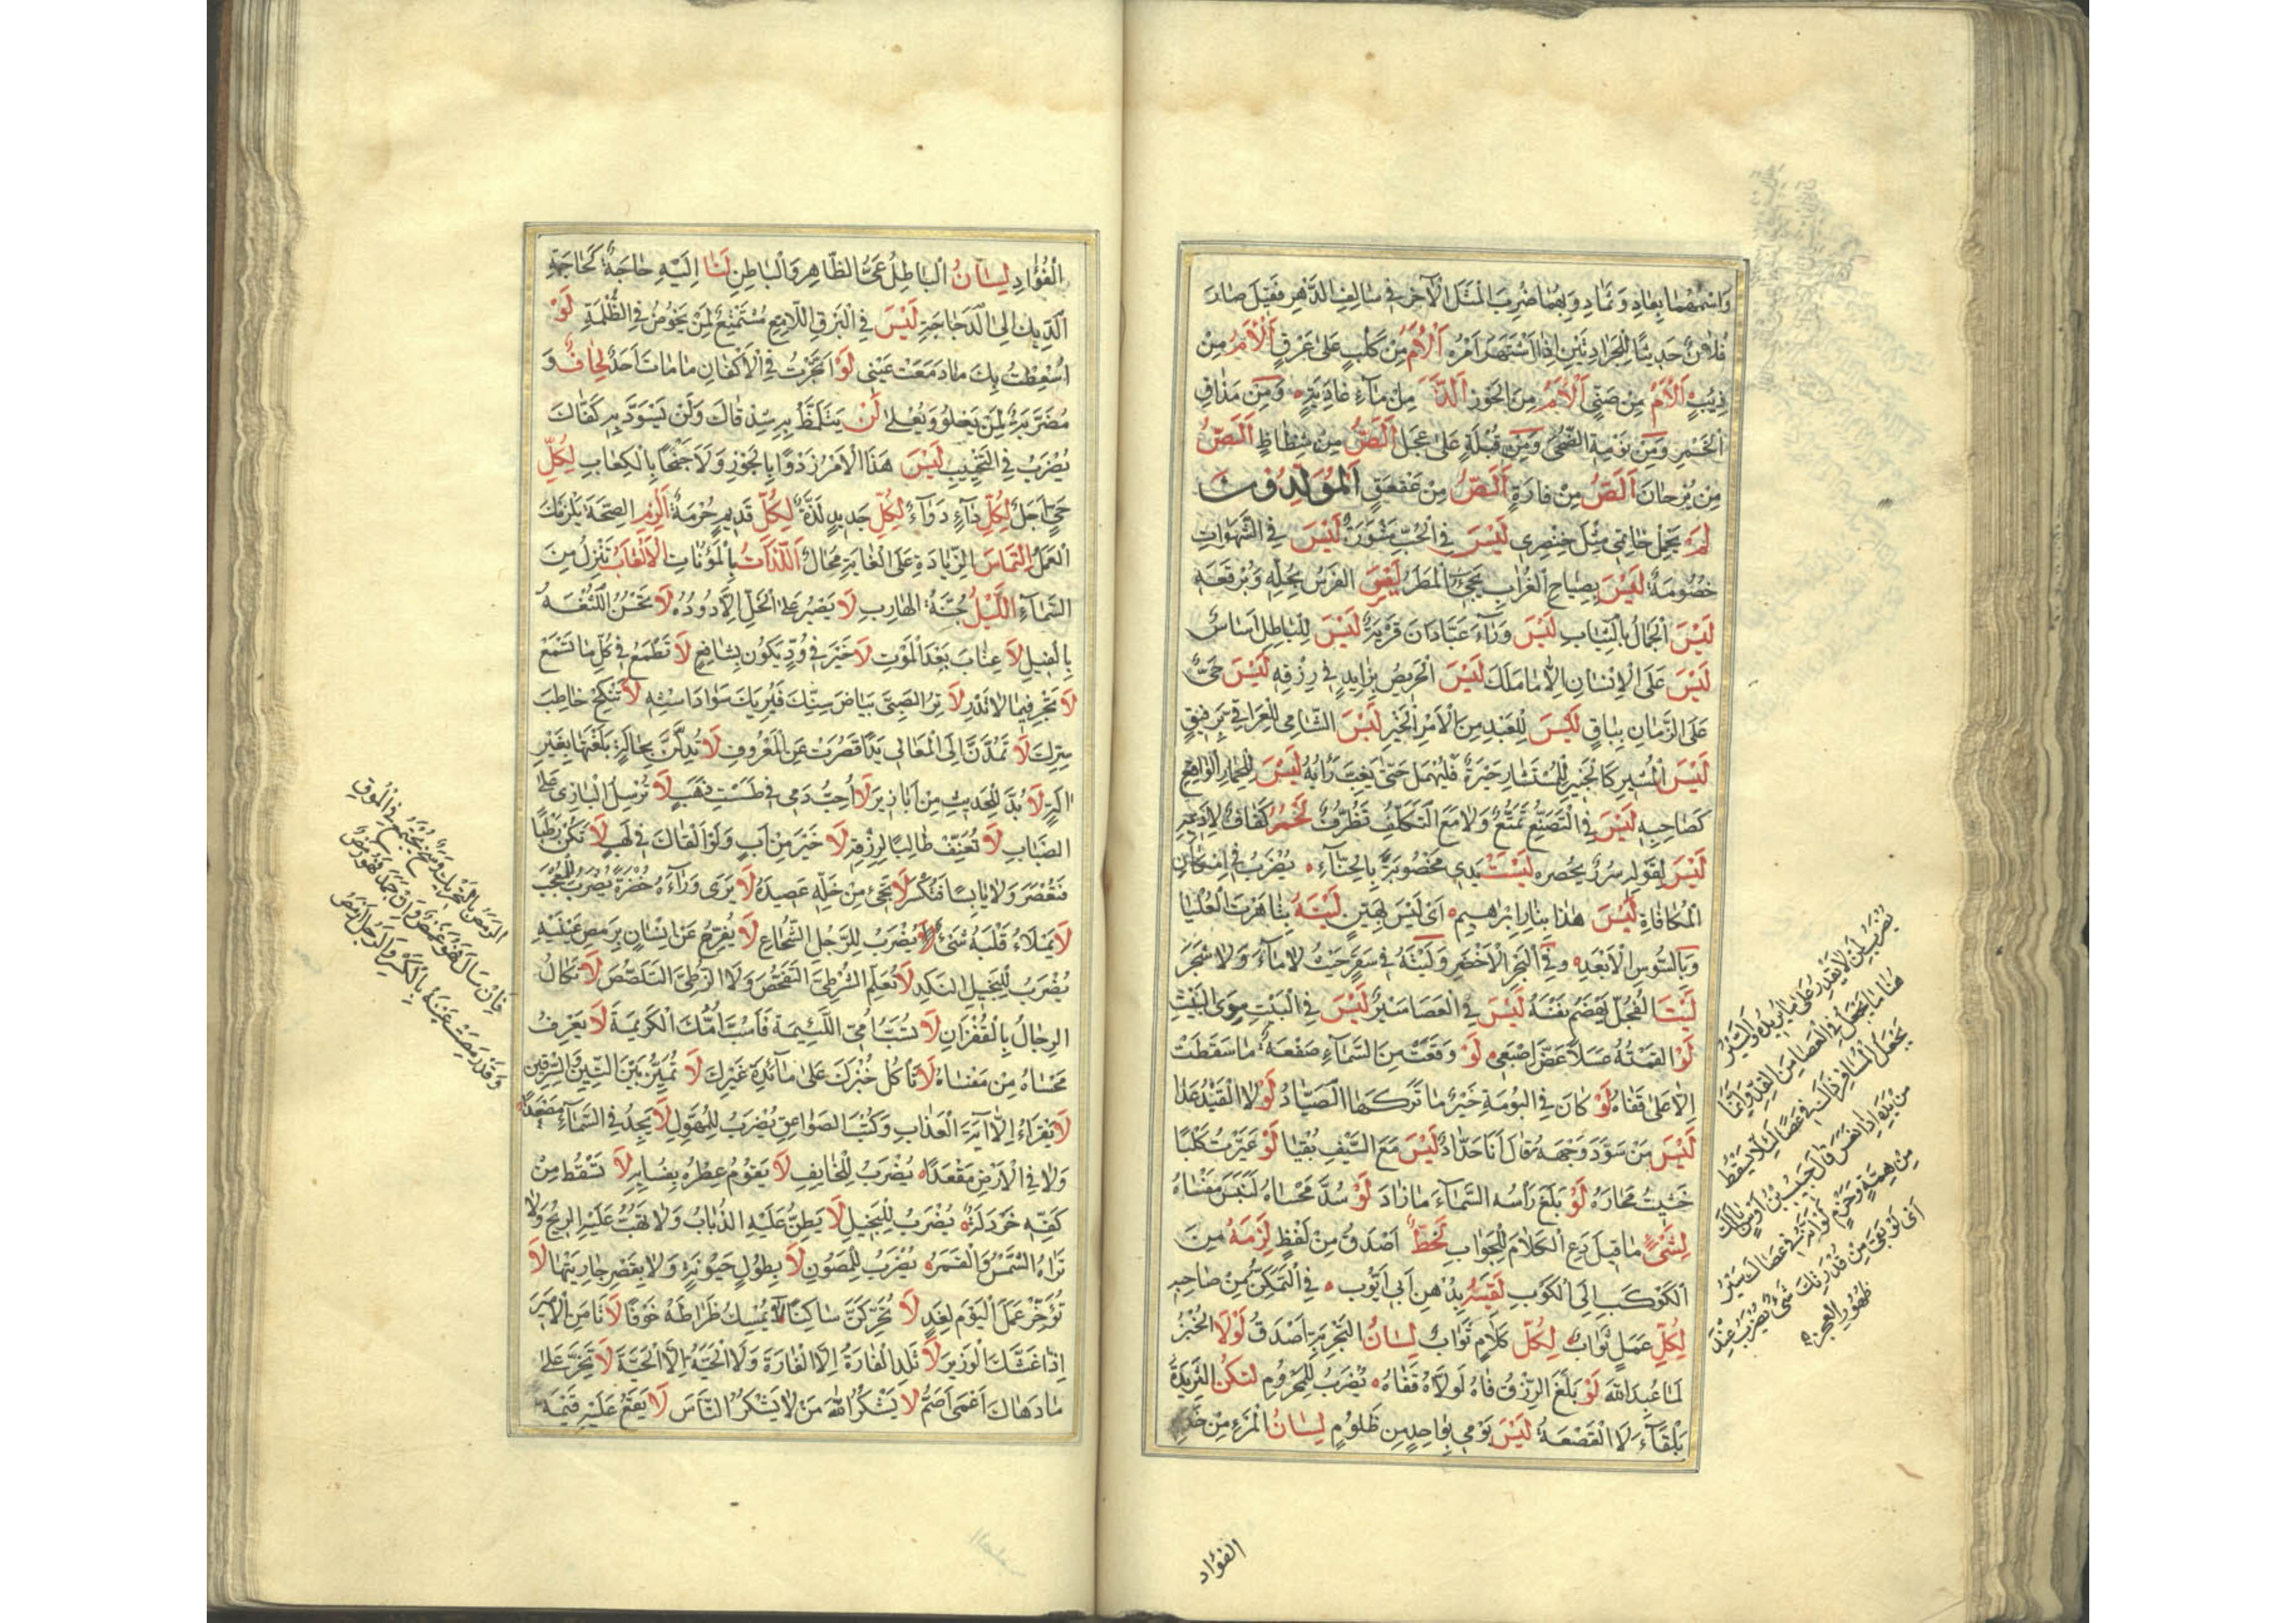 وَاسْمُهُمَا بِعَادٍ وَثَمَادٍ وَبِهِمَا ضُرِبَ الْمَثَلُ الْآخَرُ فِي سَالِفِ الدَّهْرِ فَقِيلَ صَارَ
فُلَانٌ حَدِيثَ الْجَرَادَتَيْنِ إِذَا اشْتَهَرَ أَمْرُهُ أَلْأَمُ مِنْ كَلْبٍ عَلَى عَرْقٍ أَلْأَمُ مِنْ
ذِيبٍ أَلْأَمُ مِنْ صَبِيٍّ أَلْأَمُ مِنَ الْجَوْزِ أَلَذُّ مِنْ مَاءِ غَادِيَةٍ وَمِنْ مَذَاقِ
الْخَمْرِ وَمِنْ نَوْمَةِ الضُّحَى وَمِنْ قُبْلَةٍ عَلَى عَجَلٍ أَلَصُّ مِنْ شِظَاظٍ أَلَصُّ
مِنْ بُرْجَانَ أَلَصُّ مِنْ فَارَةٍ أَلَصُّ مِنْ عَقْعَقٍ الْمُوَلَّدُونَ
لَمْ يَحْمِلْ خَاتَمِي مِثْلُ خِنْصِرِي لَيْسَ فِي الْحُبِّ مَشُورَةٌ لَيْسَ فِي الشَّهَوَاتِ
خُصُومَةٌ لَيْسَ بِصِيَاحِ الْغُرَابِ يَجِيءُ الْمَطَرُ لَيْسَ الْفَرَسُ بِجُلِّهِ وَبُرْقُعِهِ
لَيْسَ الْجَمَالُ بِالثِّيَابِ لَيْسَ وَرَاءَ عَبَّادَانَ قَرْيَةٌ لَيْسَ لِلْبَاطِلِ أَسَاسٌ
لَيْسَ عَلَى الْإِنْسَانِ إِلَّا مَا مَلَكَ لَيْسَ الْحَرِيصُ بِزَايِدٍ فِي رِزْقِهِ لَيْسَ حَيٌّ
عَلَى الزَّمَانِ بِبَاقٍ لَيْسَ لِلْعَبْدِ مِنَ الْأَمْرِ الْخَيْرِ لَيْسَ الشَّامِي لِلْعِرَاقِي بِرَفِيقٍ
لَيْسَ الْمُشِيرُ كَالْخَبِيرِ لِلْمُسْتَشَارِ حَيْرَةٌ فَلْيُمْهَلْ حَتَّى يَغِبَّ رَأْيُهُ لَيْسَ لِلْحِمَارِ الْوَاقِعِ
كَصَاحِبِهِ لَيْسَ فِي التَّصَنُّعِ تَمَتُّعٌ وَلَا مَعَ التَّكَلُّفِ تَظَرُّفٌ
لَيْسَ لِقَوْلِهِ سُورٌ يَحْصُرُهُ لَيْسَتْ يَدِي مَخْضُوبَةً بِالْحِنَّاءِ ۰ يُضْرَبُ فِي إِمْكَانِ
الْمُكَافَاةِ لَيْسَ هٰذَا بِنَارِ إِبْرَاهِيمَ ۰ أَيْ لَيْسَ بِهَيِّنٍ لَيْتَهُ بِسَاهِرَتِ الْعُلْيَا
وَبِالسُّوسِ الْأَبْعَدِ ۰ وَفِي الْبَحْرِ الْأَخْضَرِ وَلَيْتَهُ فِي سَقَرَ حَيْثُ لَا مَاءَ وَلَا شَجَرَ
لَيْتَ الْفُجْلَ يَهْضِمُ نَفْسَهُ لَيْسَ فِي الْعَصَا سَيْرٌ لَيْسَ فِي الْبَيْتِ سِوَى الْبَيْتِ
لَوْ أَلْقَمْتُهُ عَسَلًا عَضَّ إِصْبَعِي لَوْ وَقَعَتْ مِنَ السَّمَاءِ صَفْعَةٌ مَا سَقَطَتْ
إِلَّا عَلَى قَفَاهُ لَوْ كَانَ فِي الْبُومَةِ خَيْرٌ مَا تَرَكَهَا الصَّيَّادُ لَوْلَا الْقَيْدُ عَدَا
لَيْسَ مَنْ سَوَّدَ وَجْهَهُ قَالَ أَنَا حَدَّادٌ لَيْسَ مَعَ السَّيْفِ بُقْيَا لَوْ عَيَّرْتُ كَلْبًا
خَشِيتُ مَحَارَهُ لَوْ بَلَغَ رَأْسُهُ السَّمَاءَ مَا زَادَ لَوْ سُدَّ مَحْسَاهُ لَنَبَسَ مَفْسَاهُ
لِشَيْءٍ مَا قِيلَ دَعِ الْكَلَامَ لِلْجَوَابِ لَحْظٌ أَصْدَقُ مِنْ لَفْظٍ لَزِمَهُ مِنَ
الْكَوْكَبِ إِلَى الْكَوْكَبِ لَقِيتُهُ بِدُهْنِ أَبِي أَيُّوبَ ۰ فِي التَّمَكُّنِ مِنْ صَاحِبِهِ
لِكُلِّ عَمَلٍ ثَوَابٌ لِكُلِّ كَلَامٍ جَوَابٌ لِسَانُ التَّجْرِبَةِ أَصْدَقُ لَوْلَا الْخُبْزُ
لَمَا عُبِدَ اللهُ لَوْ بَلَغَ الرِّزْقُ فَاهُ لَوَلَّاهُ قَفَاهُ ۰ يُضْرَبُ لِلْمَحْرُومِ لِتَكُنِ الثَّرِيدَةُ
بَلْقَاءَ لَا الْقَصْعَةُ لَيْسَ يَوْمِي بِوَاحِدٍ مِنْ ظَلُومٍ لِسَانُ الْمَرْءِ مِنْ خَدَمِ
يُضْرَبُ لِمَنْ لَا يَقْدِرُ عَلَى مَا يُرِيدُهُ وَالسَّيْرُ
هُنَا مَا يُجْعَلُ فِي الْعَصَا مِنَ الْقِدِّ وَإِنَّمَا
يَجْعَلُ الْمُسَافِرُ ذٰلِكَ فِي عَصَاهُ لِئَلَّا يَسْقُطَ
مِنْ يَدِهِ إِذَا نَعَسَ قَالَ حَبِيبُ بْنُ أَوْسٍ مَا لَكَ
مِنْ هِمَّةٍ وَعَزْمٍ لَوْ أَنَّهُ فِي عَصَاكَ سَيْرٌ
أَيْ لَوْ بَقِيَ مِنْ قُدْرَتِكَ شَيْءٌ يُضْرَبُ عِنْدَ
ظُهُورِ الْعَجْزِ
الفؤاد
الْفُؤَادِ لِسَانُ الْبَاطِلِ عَيُّ الظَّاهِرِ وَالْبَاطِنِ لَنَا إِلَيْهِ حَاجَةٌ كَحَاجَةِ
الدِّيكِ إِلَى الدَّجَاجَةِ لَيْسَ فِي الْبَرْقِ اللَّامِعِ مُسْتَمْتَعٌ لِمَنْ يَخُوضُ فِي الظُّلْمَةِ لَوْ
اُسْعِطْتُ بِكَ مَا دَمَعَتْ عَيْنِي لَوِ اتَّجَرْتُ فِي الْأَكْفَانِ مَا مَاتَ أَحَدٌ لِحَافٌ وَ
مُضَرَّبَةٌ لِمَنْ يَعْلُو وَيُعْلَى لَنْ يَتَلَمَّظَ بِهِ شِدْقَاكَ وَلَنْ يَسْوَدَّ بِهِ كَفَّاكَ
يُضْرَبُ فِي التَّخْيِيبِ لَيْسَ هَذَا الْأَمْرُ زَدْوًا بِالْجَوْزِ وَلَا جَخْفًا بِالْكِعَابِ لِكُلِّ
حَيٍّ أَجَلٌ لِكُلِّ دَاءٍ دَوَاءٌ لِكُلِّ جَدِيدٍ لَذَّةٌ لِكُلِّ قَدِيمٍ حُرْمَةٌ اَلْزِمِ الصِّحَّةَ يَلْزَمْكَ
الْعَمَلُ اِلْتِمَاسُ الزِّيَادَةِ عَلَى الْغَايَةِ مُحَالٌ اَللَّذَّاتُ بِالْمَؤُنَاتِ الْأَلْقَابُ تَنْزِلُ مِنَ
السَّمَاءِ اللَّيْلُ جُنَّةُ الْهَارِبِ لَا يَصْبِرُ عَلَى الْخَلِّ إِلَّا دُودُهُ لَا تَحْسُنُ الثِّقَةُ
بِالْفِيلِ لَا عِتَابَ بَعْدَ الْمَوْتِ لَا خَيْرَ فِي وُدٍّ يَكُونُ بِشَافِعٍ لَا تَطْمَعْ فِي كُلِّ مَا تَسْمَعْ
لَا تَجْرِ فِيمَا لَا تَدْرِ لَا تُرِ الصَّبِيَّ بَيَاضَ سِنِّكَ فَيُرِيَكَ سَوَادَ اسْتِهِ لَا تَنْكِحْ خَاطِبَ
سِرِّكَ لَا تَمُدَّنَّ إِلَى الْمَعَالِي يَدًا قَصُرَتْ عَنِ الْمَعْرُوفِ لَا تُدِلَّنَّ بِحَالَةٍ بَلَغْتَهَا بِغَيْرِ
اٰلَةٍ لَا بُدَّ لِلْحَدِيثِ مِنْ أَبَازِيرَ لَا أُحِبُّ دَمِي فِي طَسْتِ ذَهَبٍ لَا تُرْسِلِ الْبَازِيَ عَلَى
الضَّبَابِ لَا تُعَنِّفْ طَالِبًا لِرِزْقِهِ لَا خَيْرَ مِنْ أَبٍ وَلَوْ أَلْقَاكَ فِي لَهَبٍ لَا تَكُنْ رَطْبًا
فَتُعْصَرَ وَلَا يَابِسًا فَتُكْسَرَ لَا يَجِيءُ مِنْ خَلِّهِ عَصِيدَةٌ لَا يَرَى وَرَاءَهُ خُضْرَةً يُضْرَبُ لِلْمُعْجَبِ
لَا يَمْلَاءُ قَلْبَهُ شَيْءٌ يُضْرَبُ لِلرَّجُلِ الشُّجَاعِ لَا يُفَرِّجُ عَنْ إِنْسَانٍ بِرَمَصِ عَيْنَيْهِ
يُضْرَبُ لِلْبَخِيلِ النَّكِدِ لَا تُعَلِّمِ الشُّرَطِيَّ التَّفَحُّصَ وَلَا الزُّطِّيَّ التَّلَصُّصَ لَا تُكَالُ
الرِّجَالُ بِالْقُفْزَانِ لَا تَسُبَّ أُمِّيَ اللَّئِيمَةَ فَأَسُبَّ أُمَّكَ الْكَرِيمَةَ لَا يَعْرِفُ
مَحْسَاهُ مِنْ مَفْسَاهُ لَا تَأْكُلْ خُبْزَكَ عَلَى مَائِدَةِ غَيْرِكَ لَا تُمَيِّزُ بَيْنَ التِّينِ وَالسِّرْقِينِ
لَا تَقْرَاءُ إِلَّا آيَةَ الْعَذَابِ وَكُتُبَ الصَّوَاعِقِ يُضْرَبُ لِلْمُهَوِّلِ لَا يَجِدُ فِي السَّمَاءِ مَصْعَدًا
وَلَا فِي الْأَرْضِ مَقْعَدًا ۰ يُضْرَبُ لِلْخَايِفِ لَا يَقُومُ عِطْرُهُ بِفُسَايِهِ لَا تَسْقُطُ مِنْ
كَفِّهِ خَرْدَلَةٌ ۰ يُضْرَبُ لِلْبَخِيلِ لَا يَطِنُّ عَلَيْهِ الذُّبَابُ وَلَا تَهُبُّ عَلَيْهِ الرِّيحُ وَلَا
تَرَاهُ الشَّمْسُ وَالْقَمَرُ ۰ يُضْرَبُ لِلْمَصُونِ لَا بِطُولِ حَيَوتِهِ وَلَا بِقِصَرِ جَارِيَتِهَا لَا
تُؤَخِّرْ عَمَلَ الْيَوْمِ لِغَدٍ لَا تُحَرِّكَنَّ سَاكِنًا لَا يُمْسِكُ ضُرَاطَهُ خَوْفًا لَا تَامَنِ الْأَمِيرَ
إِذَا غَشَّكَ الْوَزِيرُ لَا تَلِدُ الْفَارَةُ إِلَّا الْفَارَةَ وَلَا الْحَيَّةُ إِلَّا الْحَيَّةَ لَا تَجْرِ عَلَى
مَا دَهَاكَ أَعْمَى أَصَمُّ لَا يَشْكُرُ اللهَ مَنْ لَا يَشْكُرُ النَّاسَ لَا يَقَعُ عَلَيْهِ قِيمَةٌ
الرَّمَصُ بِالتَّحْرِيكِ وَسَخٌ يَجْتَمِعُ فِي الْمُوقِ
فَإِنْ سَالَ فَهُوَ غَمَصٌ وَإِنْ جَمَدَ فَهُوَ رَمَصٌ
وَقَدْ رَمِصَتْ عَيْنُهُ بِالْكَسْرِ وَالرَّجُلُ أَرْمَصُ